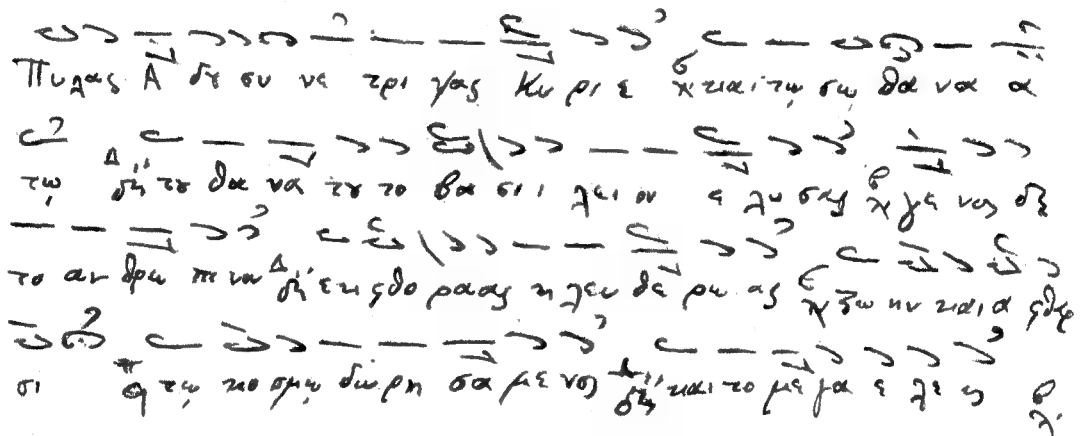 Πυλας Αδȣ συνετριψας Κυριε και τῳ σῳ θανα
τῳ τȣ θανατȣ το βασιιλειον ελυσας γενος δε
το ανθρωπινον εκ φθορας ηλευθερωας ζωην και αφθαρ
σι τῳ κοσμῳ δωρησαμενος και το μεγα ελεος